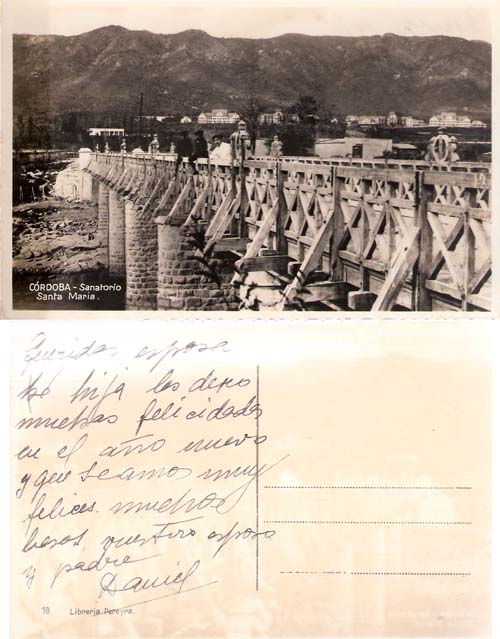 CÓRDOBA - Sanatorio
Santa Maria.
Queridas esposa
he hija les deseo
muchas felicidades
en el año nuevo
y que seamos muy
felices muchos
besos vuestro esposo
y padre
Daniel
18 Librería Pereyra.